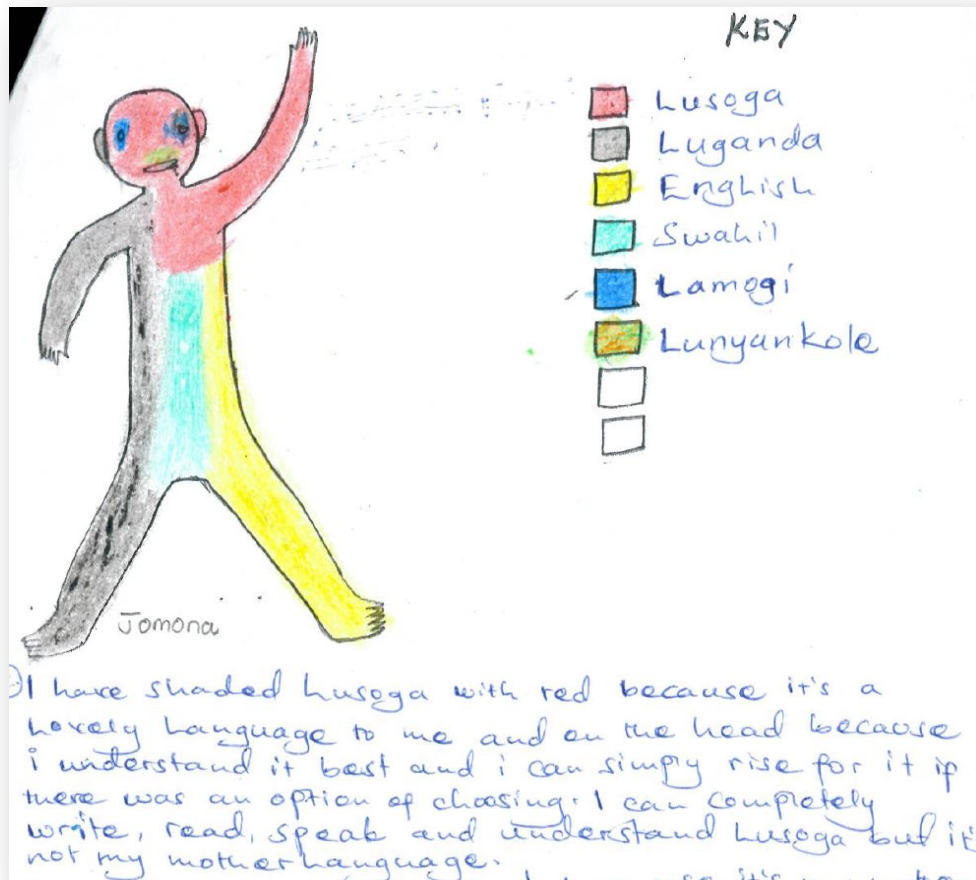 KEY
Lusoga
Luganda
English
Swahil
Lamogi
Lunyankole
Jomona
I have shaded Lusoga with red because it's a
Lovely Language to me and on the head because
i understand it best and i can simply rise for it if
there was an option of choosing. I can completely
write, read, speak and understand Lusoga but it
not my mother Language.